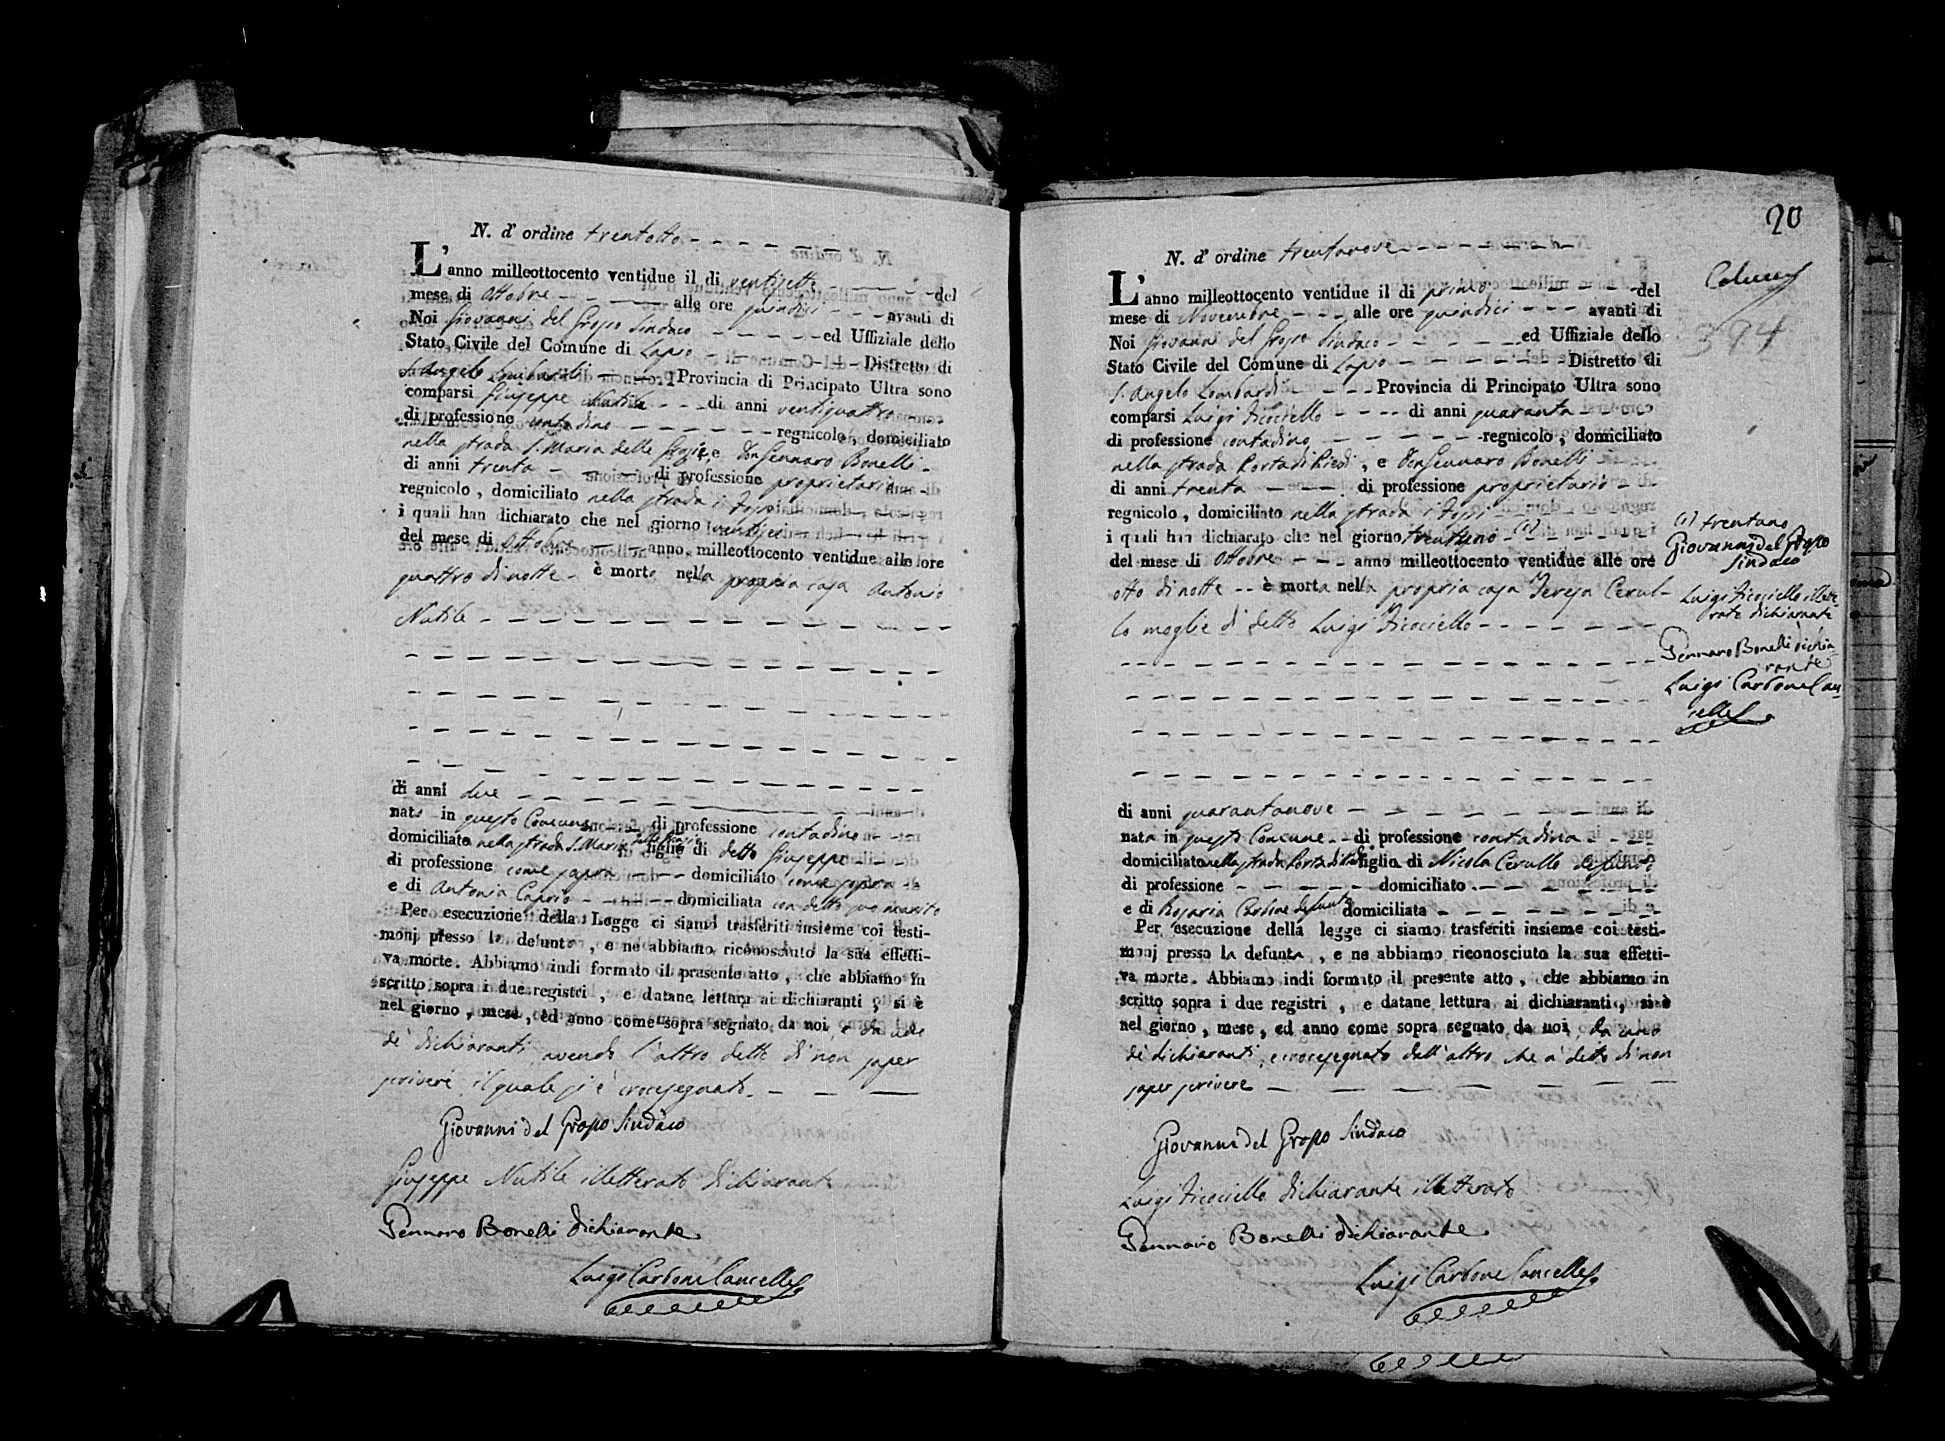 N. d' ordine trentotto
L'anno milleottocento ventidue il dì ventisette del
mese di Ottobre alle ore quindici avanti di
Noi Giovanni del Grosso Sindaco ed Uffiziale dello
Stato Civile del Comune di Lapio Distretto di
S. Angelo Lombardi Provincia di Principato Ultra sono
comparsi Giuseppe Nutile di anni ventiquattro
di professione contadino regnicolo, domiciliato
nella strada S. Maria delle Grazie, e Don Gennaro Bonelli
di anni trenta di professione proprietario
regnicolo, domiciliato nella strada i Fossi
i quali han dichiarato che nel giorno ventisei
del mese di Ottobre anno milleottocento ventidue alle ore
quattro di notte è morto nella propria casa Antonio
Nutile
di anni due
nato in questo Comune di professione contadino
domiciliato nella strada S. Maria delle Grazie figlio di detto Giuseppe
di professione come sopra domiciliato come sopra
e di Antonia Caprio domiciliata con detto suo marito
Per esecuzione della Legge ci siamo trasferiti insieme coi testi-
monj presso lo defunto, e ne abbiamo riconosciuto la sua effetti-
va morte. Abbiamo indi formato il presente atto, che abbiamo in
scritto sopra i due registri, e datane lettura ai dichiaranti, si è
nel giorno, mese, ed anno come sopra segnato da noi, e da uno
de' dichiaranti avendo l'altro detto di non saper
scrivere il quale si è crocesegnato.
Giovanni del Grosso Sindaco
Giuseppe Nutile illetterato dichiarante
Gennaro Bonelli dichiarante
Luigi Carbone Cancelle
20
394
N. d' ordine trentanove
L'anno milleottocento ventidue il dì primo del
mese di Novembre alle ore quindici avanti di
Noi Giovanni del Grosso Sindaco ed Uffiziale dello
Stato Civile del Comune di Lapio Distretto di
S. Angelo Lombardi Provincia di Principato Ultra sono
comparsi Luigi Ficociello di anni quaranta
di professione contadino regnicolo, domiciliato
nella strada Porta di Piedi, e Don Gennaro Bonelli
di anni trenta di professione proprietario
regnicolo, domiciliato nella strada i Fossi
i quali han dichiarato che nel giorno trentuno (1)
del mese di Ottobre anno milleottocento ventidue alle ore
otto di notte è morta nella propria casa Teresa Cerul-
lo moglie di detto Luigi Ficociello
di anni quarantanove
nata in questo Comune di professione contadina
domiciliata nella strada Porta di Piedi figlia di Nicola Cerullo defunto
di professione domiciliato
e di Rosaria Carbone defunta domiciliata
Per esecuzione della legge ci siamo trasferiti insieme coi testi-
monj presso la defunta, e ne abbiamo riconosciuto la sua effetti-
va morte. Abbiamo indi formato il presente atto, che abbiamo in
scritto sopra i due registri, e datane lettura ai dichiaranti, si è
nel giorno, mese, ed anno come sopra segnato da noi, da uno
de' dichiaranti, e crocesegnato dall'altro che à detto di non
saper scrivere
Giovanni del Grosso Sindaco
Luigi Ficociello dichiarante illetterato
Gennaro Bonelli dichiarante
Luigi Carbone Cancelle
(1) trentuno
Giovanni del Grosso
Sindaco
Luigi Ficociello illette-
rato dichiarante
Gennaro Bonelli dichia-
rante
Luigi Carbone Can-
celle